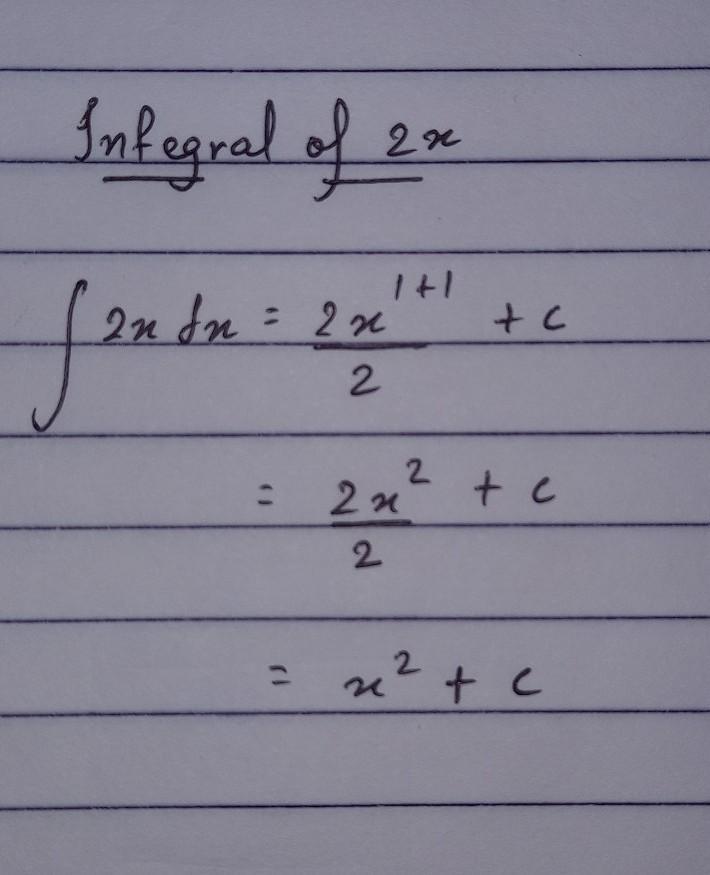 Integral of 2x
∫ 2x dx = 2x¹⁺¹/2 + c
= 2x²/2 + c
= x² + c